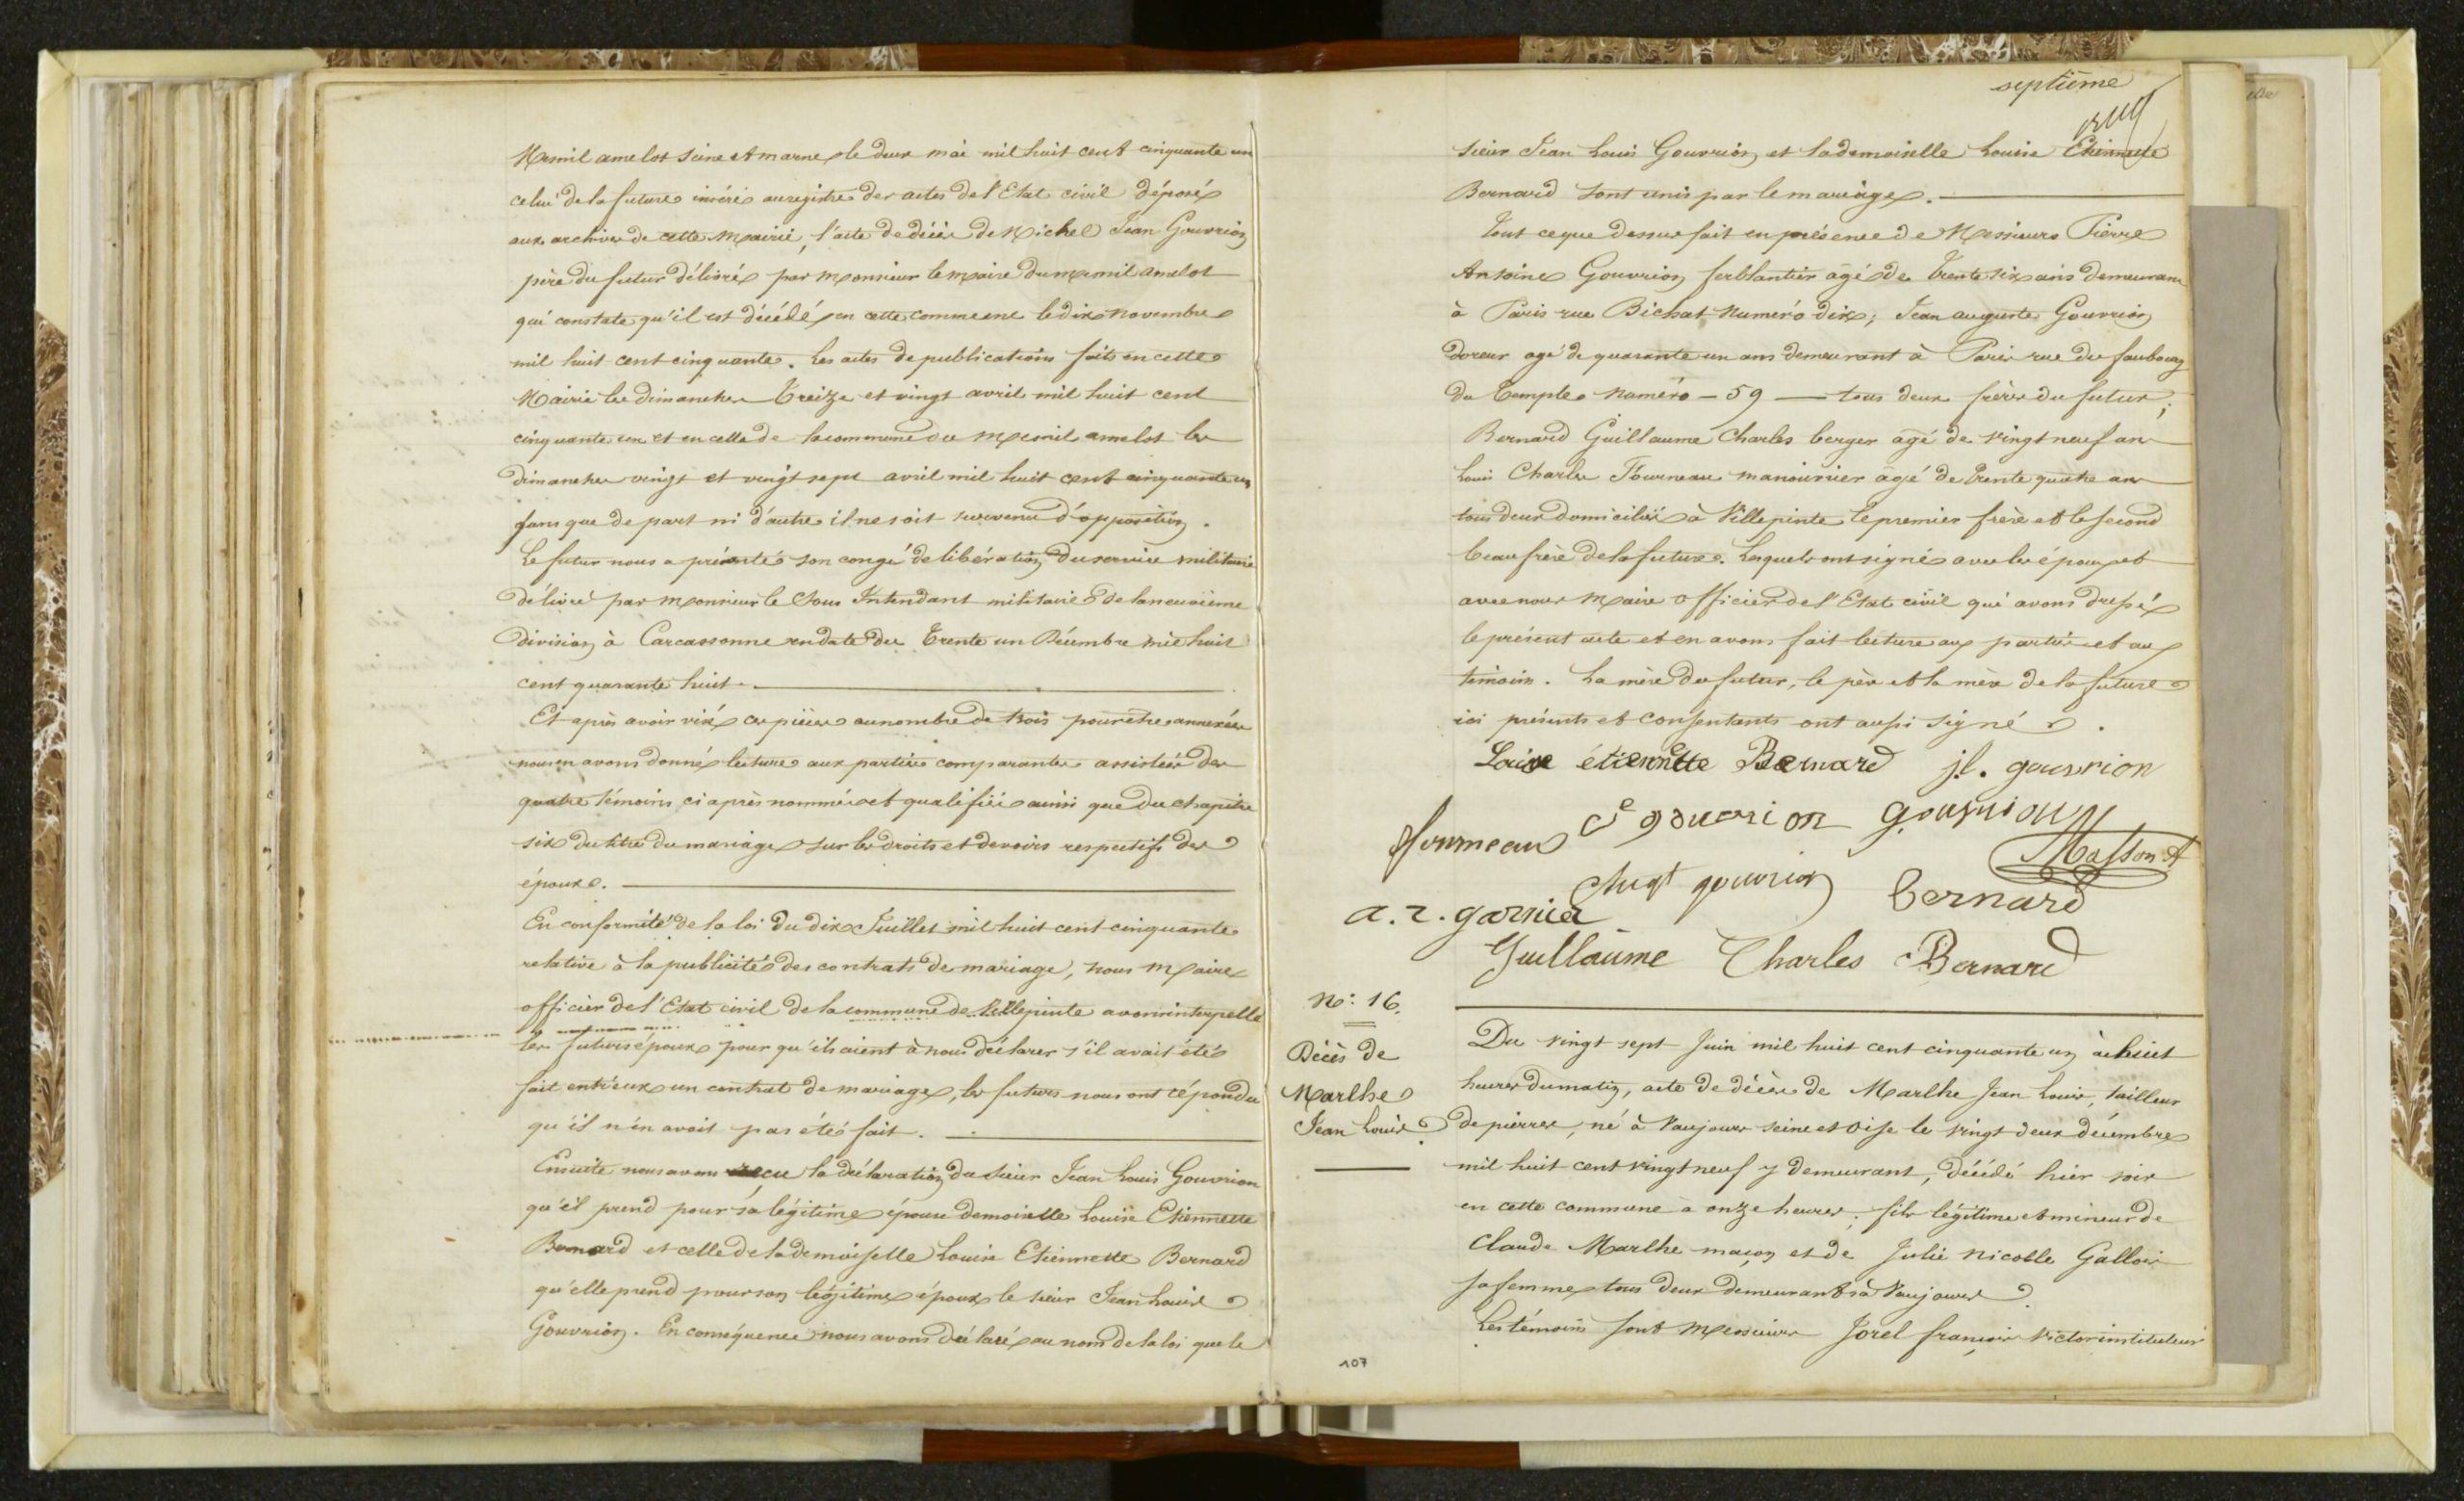 Mesnil amelot Seine et marne, le deux mai mil huit cent cinquante un
celui de la future inséré au registre des actes de l'Etat civil déposés
aux archives de cette mairie, l'acte de décès de Michel Jean Gouvrion
père du futur délivré par monsieur le maire du mesnil amelot
qui constate qu'il est décédé en cette commune le dix novembre
mil huit cent cinquante. Les actes de publications faits en cette
Mairie les dimanches treize et vingt avril mil huit cent
cinquante un et en celle de la commune du mesnil amelot les
dimanches vingt et vingt sept avril mil huit cent cinquante un
sans que de part ni d'autre il ne soit survenu d'opposition.
Le futur nous a présenté son congé de libération du service militaire
délivré par monsieur le Sous Intendant militaire de la neuvième
division à Carcassonne en date du trente un Décembre mil huit
cent quarante huit.
Et après avoir visé ces pièces au nombre de trois pour être annexées
nous en avons donné lecture aux parties comparantes assistées des
quatre témoins ci après nommés et qualifiés ainsi que du chapitre
six du titre du mariage sur les droits et devoirs respectifs des
époux.
En conformité de la loi du dix Juillet mil huit cent cinquante
relative à la publicité des contrats de mariage, nous maire
officier de l'Etat civil de la commune de Villepinte avons interpellé
les futurs époux pour qu'ils aient à nous déclarer s'il avait été
fait entr'eux un contrat de mariage, les futurs nous ont répondu
qu'il n'en avait pas été fait.
Ensuite nous avons reçu la déclaration du sieur Jean Louis Gouvrion
qu'il prend pour sa légitime épouse demoiselle Louise Etiennette
Bernard et celle de la demoiselle Louise Etiennette Bernard
qu'elle prend pour son légitime époux le sieur Jean Louis
Gouvrion. En conséquence nous avons déclaré au nom de la loi que le
septième
sieur Jean Louis Gouvrion et la demoiselle Louise Etiennette
Bernard sont unis par le mariage.
Tout ce que dessus fait en présence de Messieurs Pierre
Antoine Gouvrion ferblantier âgé de trente six ans demeurant
à Paris rue Bichat numéro dix; Jean auguste Gouvrion
doreur agé de quarante un ans demeurant à Paris rue du faubourg
du Temple numéro - 59 - tous deux frères du futur;
Bernard Guillaume Charles berger agé de vingt neuf ans
Louis Charles Fourneau manouvrier âgé de trente quatre ans
tous deux domiciliés à Villepinte le premier frère et le second
beau frère de la future. Lesquels ont signé avec les époux et
avec nous maire officier de l'Etat civil qui avons dressé
le présent acte et en avons fait lecture aux parties et aux
témoins. La mère du futur, le père et la mère de la future
ici présents et consentants ont aussi signé.
Louise étiennette Bernard j.l. gouvrion
fourneau gouvrion gouvrion
Masson
Augt gouvrion bernard
a. r. garnier
Guillaume Charles Bernard
No: 16.
Décès de
Marlhe
Jean Louis
Du vingt sept Juin mil huit cent cinquante un à huit
heures du matin, acte de décès de Marlhe Jean Louis, tailleur
de pierres, né à Vaujours seine et Oise le vingt deux décembre
mil huit cent vingt neuf y demeurant, décédé hier soir
en cette commune à onze heures; fils légitime et mineur de
Claude Marlhe maçon et de Julie Nicolle Gallois
sa femme tous deux demeurant à Vaujours
Les témoins sont messieurs Jorel françois Victor instituteur
107